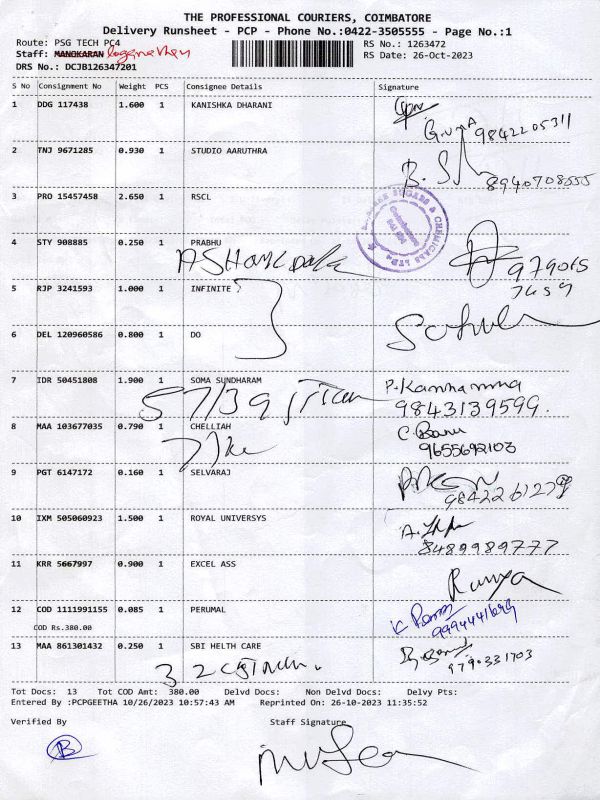 THE PROFESSIONAL COURIERS, COIMBATORE
Delivery Runsheet - PCP - Phone No.:0422-3505555 - Page No.:1
Route: PSG TECH PC4 RS No.: 1263472
Staff: MANOKARAN loganathan RS Date: 26-Oct-2023
DRS No.: DCJB126347201
S No Consignment No Weight PCS Consignee Details Signature
1 DDG 117438 1.600 1 KANISHKA DHARANI
9842205311
2 TNJ 9671285 0.930 1 STUDIO AARUTHRA
8940708555
3 PRO 15457458 2.650 1 RSCL
SUGARS & CHEMICALS LTD
4 STY 908885 0.250 1 PRABHU
5 RJP 3241593 1.000 1 INFINITE
6 DEL 120960586 0.800 1 DO
7 IDR 50451808 1.900 1 SOMA SUNDHARAM P. Kannamma
57/39 9843139599.
8 MAA 103677035 0.790 1 CHELLIAH C. Banu
9655692103
9 PGT 6147172 0.160 1 SELVARAJ
10 IXM 505060923 1.500 1 ROYAL UNIVERSYS
8489989777
11 KRR 5667997 0.900 1 EXCEL ASS
Ramya
12 COD 1111991155 0.085 1 PERUMAL
COD Rs.380.00
13 MAA 861301432 0.250 1 SBI HELTH CARE
9790331703
Tot Docs: 13 Tot COD Amt: 380.00 Delvd Docs: Non Delvd Docs: Delvy Pts:
Entered By :PCPGEETHA 10/26/2023 10:57:43 AM Reprinted On: 26-10-2023 11:35:52
Verified By Staff Signature
B